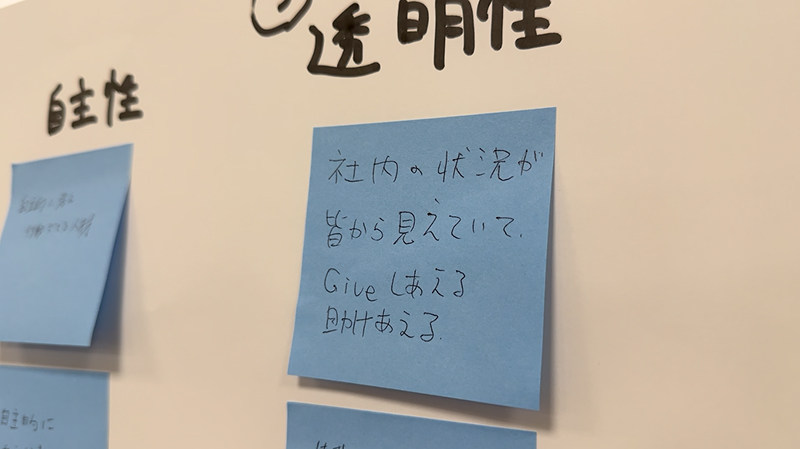 自主性
透明性
社内の状況が
皆から見えていて、
Giveしあえる
助けあえる。
自主的に